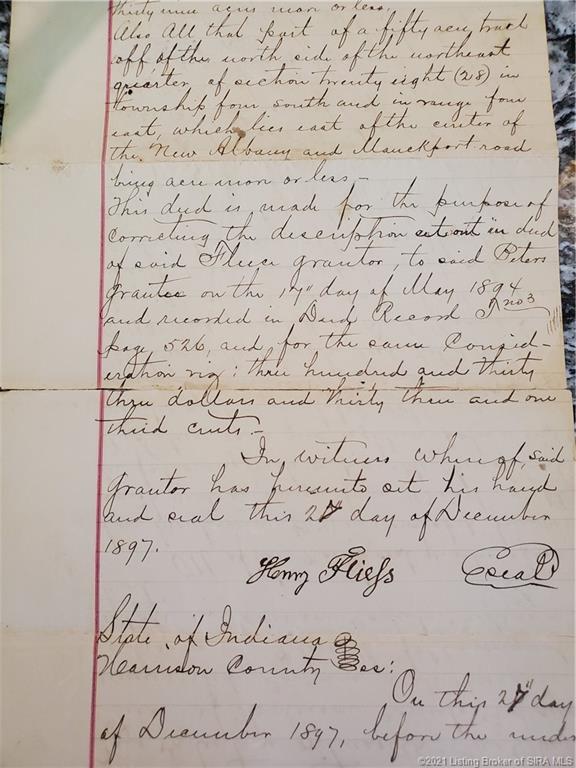 thirty nine acres more or less.
Also All that part of a fifty acre tract
off of the north side of the northeast
quarter of section twenty eight (28) in
township four south and in range four
east, which lies east of the center of
the New Albany and Mauckport road
being acre more or less —
This deed is made for the purpose of
correcting the description set out in deed
of said Fliess grantor, to said Peters
grantee on the 17" day of May 1894
and recorded in Deed Record T no 3
page 526, and, for the same consid-
eration viz: three hundred and thirty
three dollars and thirty three and one
third cents. —
In witness whereof, said
grantor has hereunto set his hand
and seal this 27" day of December
1897.
Henry Fliess (Seal)
State of Indiana
Harrison County ss:
On this 27" day
of December 1897, before the under
©2021 Listing Broker of SIRA MLS